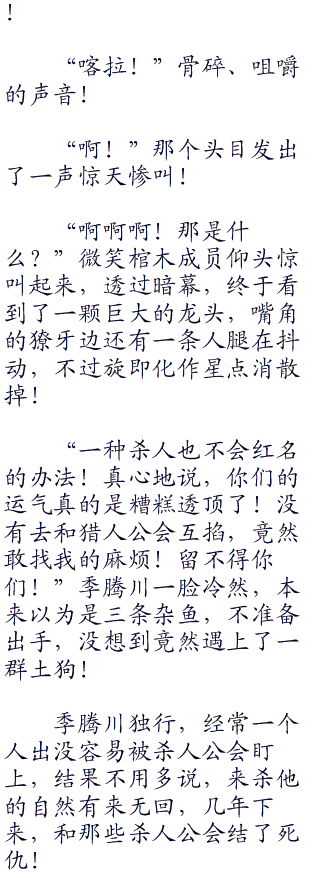 ！
“喀拉！”骨碎、咀嚼
的声音！
“啊！”那个头目发出
了一声惊天惨叫！
“啊啊啊！那是什
么？”微笑棺木成员仰头惊
叫起来，透过暗幕，终于看
到了一颗巨大的龙头，嘴角
的獠牙边还有一条人腿在抖
动，不过旋即化作星点消散
掉！
“一种杀人也不会红名
的办法！真心地说，你们的
运气真的是糟糕透顶了！没
有去和猎人公会互掐，竟然
敢找我的麻烦！留不得你
们！”季腾川一脸冷然，本
来以为是三条杂鱼，不准备
出手，没想到竟然遇上了一
群土狗！
季腾川独行，经常一个
人出没容易被杀人公会盯
上，结果不用多说，来杀他
的自然有来无回，几年下
来，和那些杀人公会结了死
仇！